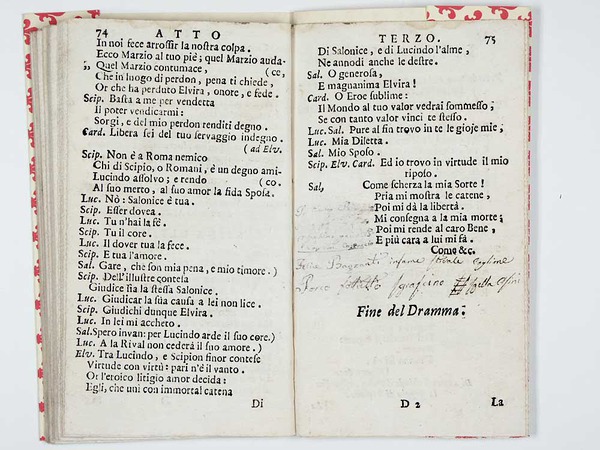 74 ATTO
In noi fece arrossir la nostra colpa.
Ecco Marzio al tuo piè; quel Marzio auda-
„ Quel Marzio contumace, (ce,
Che in luogo di perdon, pena ti chiede,
Or che ha perduto Elvira, onore, e fede.
Scip. Basta a me per vendetta
Il poter vendicarmi:
Sorgi, e del mio perdon renditi degno.
Card. Libera sei del tuo servaggio indegno.
( ad Elv.
Scip. Non è a Roma nemico
Chi di Scipio, o Romani, è un degno ami-
Lucindo assolvo; e rendo (co.
Al suo merto, al suo amor la fida Sposa.
Luc. Nò: Salonice è tua.
Scip. Esser dovea.
Luc. Tu n'hai la fé.
Scip. Tu il core.
Luc. Il dover tua la fece.
Scip. E tua l'amore.
Sal. Gare, che son mia pena, e mio timore.)
Scip. Dell'illustre contesa
Giudice sia la stessa Salonice.
Luc. Giudicar la sua causa a lei non lice.
Scip. Giudichi dunque Elvira.
Luc. In lei mi accheto.
Sal. Spero invan: per Lucindo arde il suo core.)
Luc. A la Rival non cederà il suo amore.)
Elv. Tra Lucindo, e Scipion finor contese
Virtude con virtù: pari n'è il vanto.
Or l'eroico litigio amor decida:
Egli, che unì con immortal catena
Di
TERZO. 75
Di Salonice, e di Lucindo l'alme,
Ne annodi anche le destre.
Sal. O generosa,
E magnanima Elvira!
Card. O Eroe sublime:
Il Mondo al tuo valor vedrai sommesso;
Se con tanto valor vinci te stesso.
Luc. Sal. Pure al fin trovo in te le gioje mie;
Luc. Mia Diletta.
Sal. Mio Sposo.
Scip. Elv. Card. Ed io trovo in virtude il mio
riposo.
Sal. Come scherza la mia Sorte!
Pria mi mostra le catene,
Poi mi dà la libertà.
Mi consegna a la mia morte;
Poi mi rende al caro Bene,
E più cara a lui mi fà.
Come &c.
infame
Porco
Fine del Dramma.
D 2 La